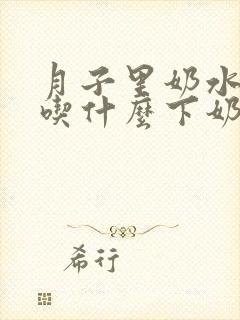 月子里奶水
喫什麼下奶
希行